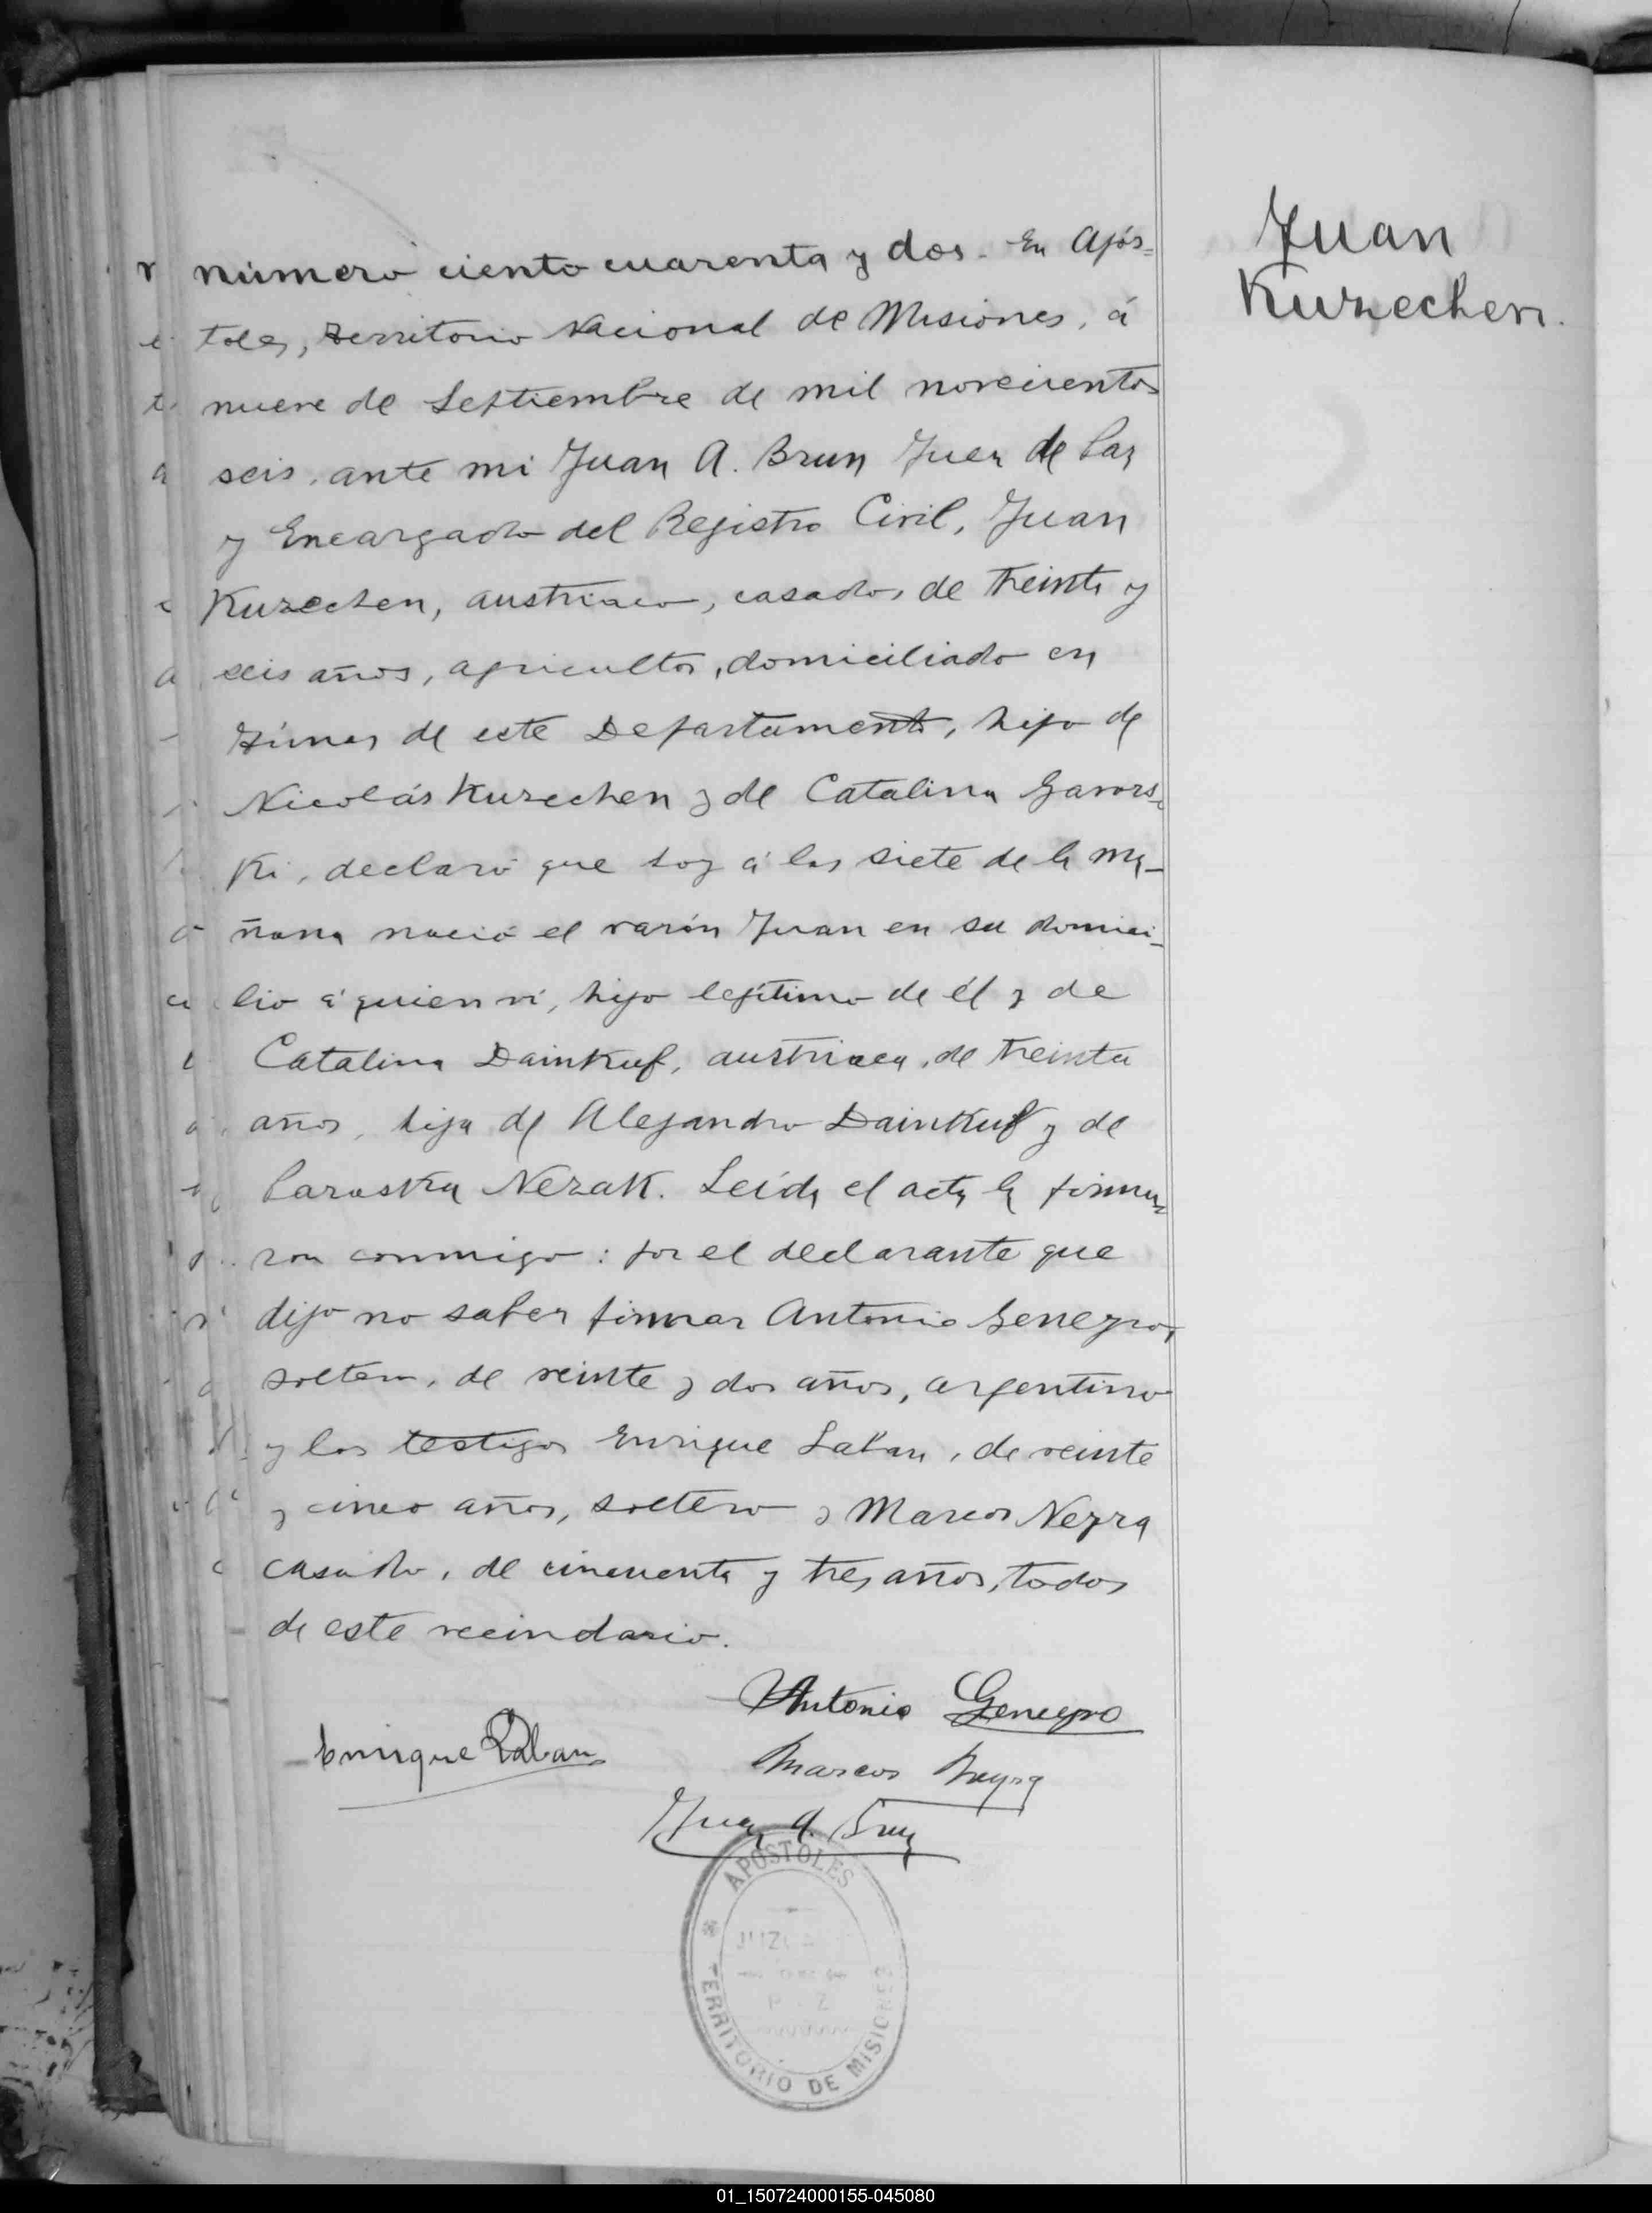 Juan
Kurechen.
número ciento cuarenta y dos. En Após-
toles, Territorio Nacional de Misiones, á
nueve de Septiembre de mil novecientos
seis, ante mi Juan A. Brun Juez de Paz
y Encargado del Registro Civil, Juan
Kurechen, austriaco, casado, de treinta y
seis años, agricultor, domiciliado en
de este Departamento, hijo de
Nicolás Kurechen y de Catalina Gavors-
ki, declaró que hoy á las siete de la ma-
ñana nació el varón Juan en su domici-
lio á quien ví, hijo legítimo de él y de
Catalina Dainkuf, austriaca, de treinta
años, hija de Alejandro Dainkuf y de
Paraska Nezak. Leída el acta la firma-
ron conmigo: por el declarante que
dijo no saber firmar Antonio Genegro,
soltero, de veinte y dos años, argentino
y los testigos Enrique Laban, de veinte
y cinco años, soltero y Marcos Neyra
casado, de cincuenta y tres años, todos
de este vecindario.
Antonio Genegro
Enrique Laban
Marcos Neyra
Juan A. Brun
APOSTOLES
TERRITORIO DE MISIONES
01_150724000155-045080